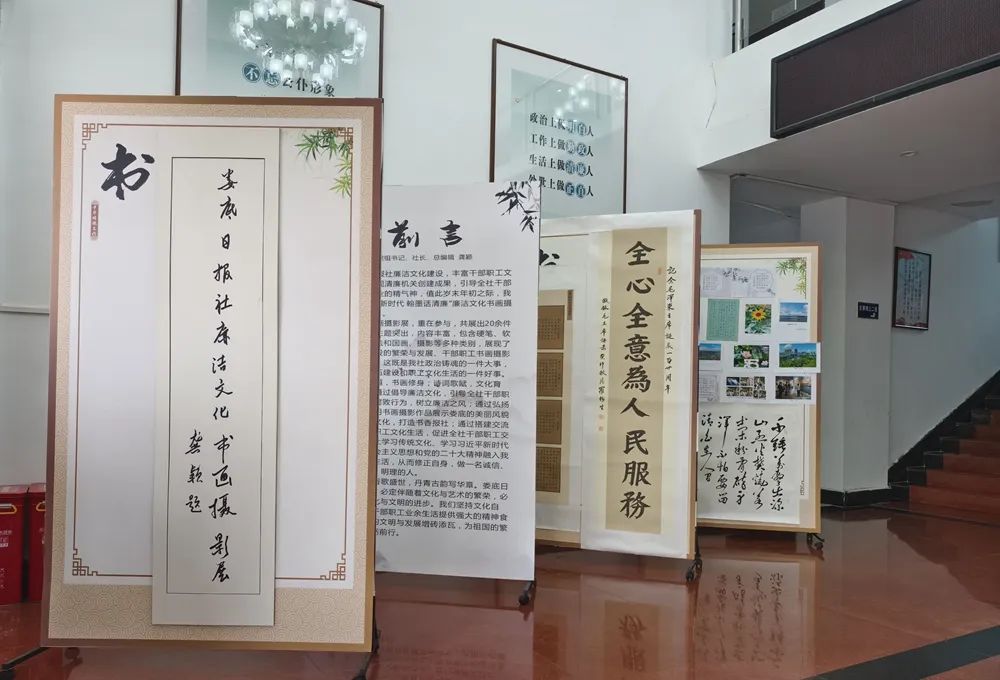 书
娄底日报社廉洁文化书画摄影展
龚颖题
不忘公仆形象
政治上做明白人
工作上做勤政人
生活上做清廉人
处世上做正直人
前言
组书记、社长、总编辑 龚颖
社廉洁文化建设，丰富干部职工文
清廉机关创建成果，引导全社干部
的精气神，值此岁末年初之际，我
新时代 翰墨话清廉”廉洁文化书画摄
摄影展，重在参与，共展出20余件
主题突出，内容丰富，包含硬笔、软
和国画、摄影等多种类别，展现了
的繁荣与发展、干部职工书画摄影
这既是我社政治铸魂的一件大事，
建设和职工文化生活的一件好事。
书画修身；诗词歌赋，文化育
通过倡导廉洁文化，引导全社干部
腐败行为，树立廉洁之风；通过弘扬
书画摄影作品展示娄底的美丽风貌
文化，打造书香报社；通过搭建交流
职工文化生活，促进全社干部职工交
学习传统文化、学习习近平新时代
会主义思想和党的二十大精神融入我
生活，从而修正自身，做一名诚信、
明理的人。
歌盛世，丹青古韵写华章。娄底日
必定伴随着文化与艺术的繁荣，必
与文明的进步。我们坚持文化自
干部职工业余生活提供强大的精神食
文明与发展增砖添瓦，为祖国的繁
前行。
书
纪念毛泽东主席诞辰一百廿周年
全心全意為人民服務
千锤万凿出深
山烈火焚烧若
等闲粉骨碎身
浑不怕要留
清白在人间